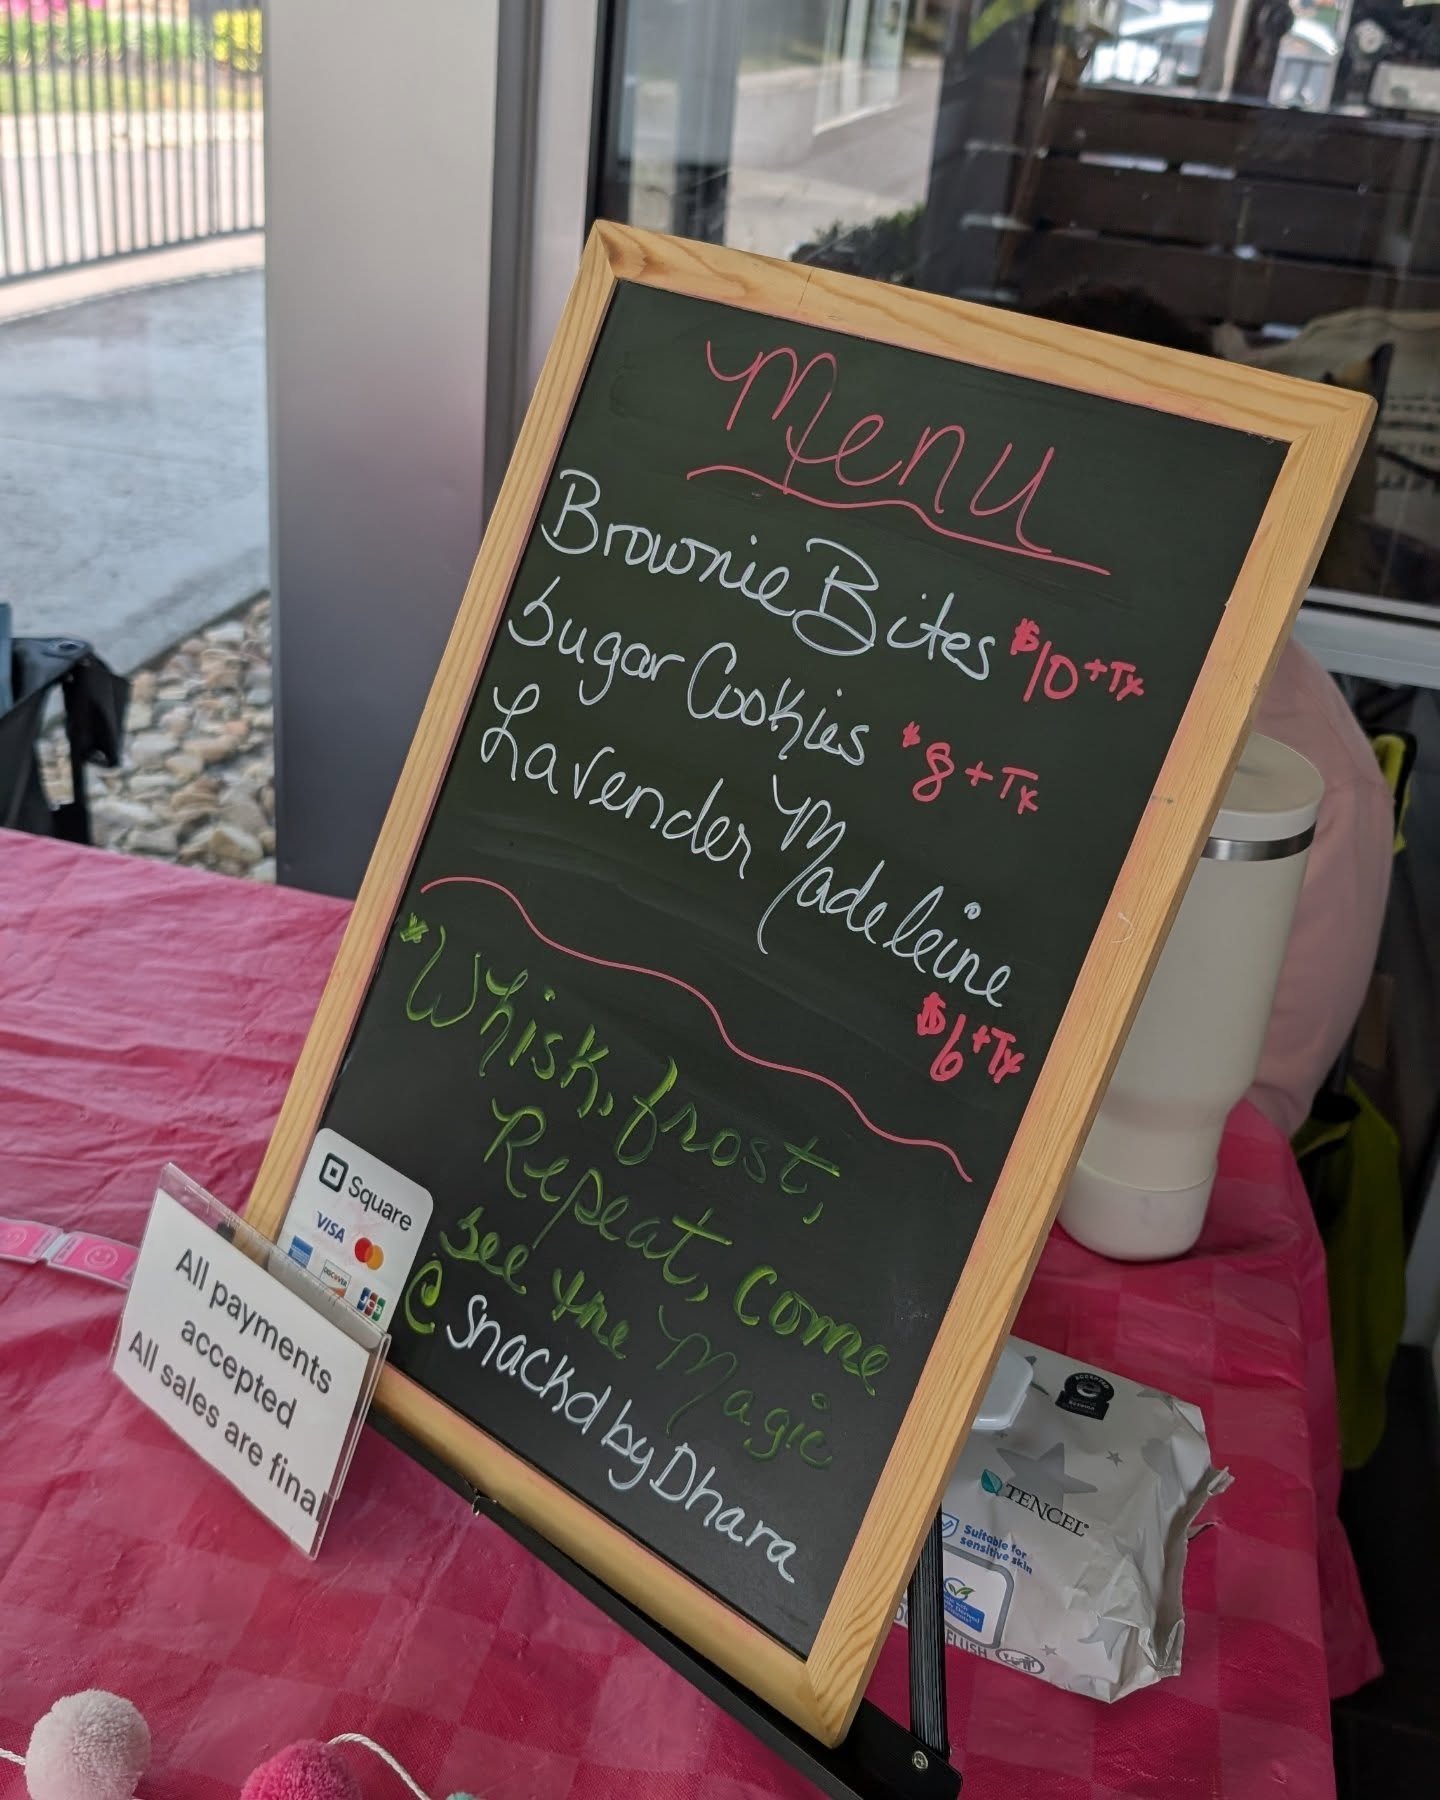 Menu
Brownie Bites $10 + Tx
Sugar Cookies $8 + Tx
Lavender Madeleine
$6 + Tx
*Whisk, frost,
Repeat, come
see the Magic
@ Snackd by Dhara
Square
VISA
DISCOVER
JCB
All payments
accepted
All sales are final
TENCEL
Suitable for
sensitive skin
FLUSH